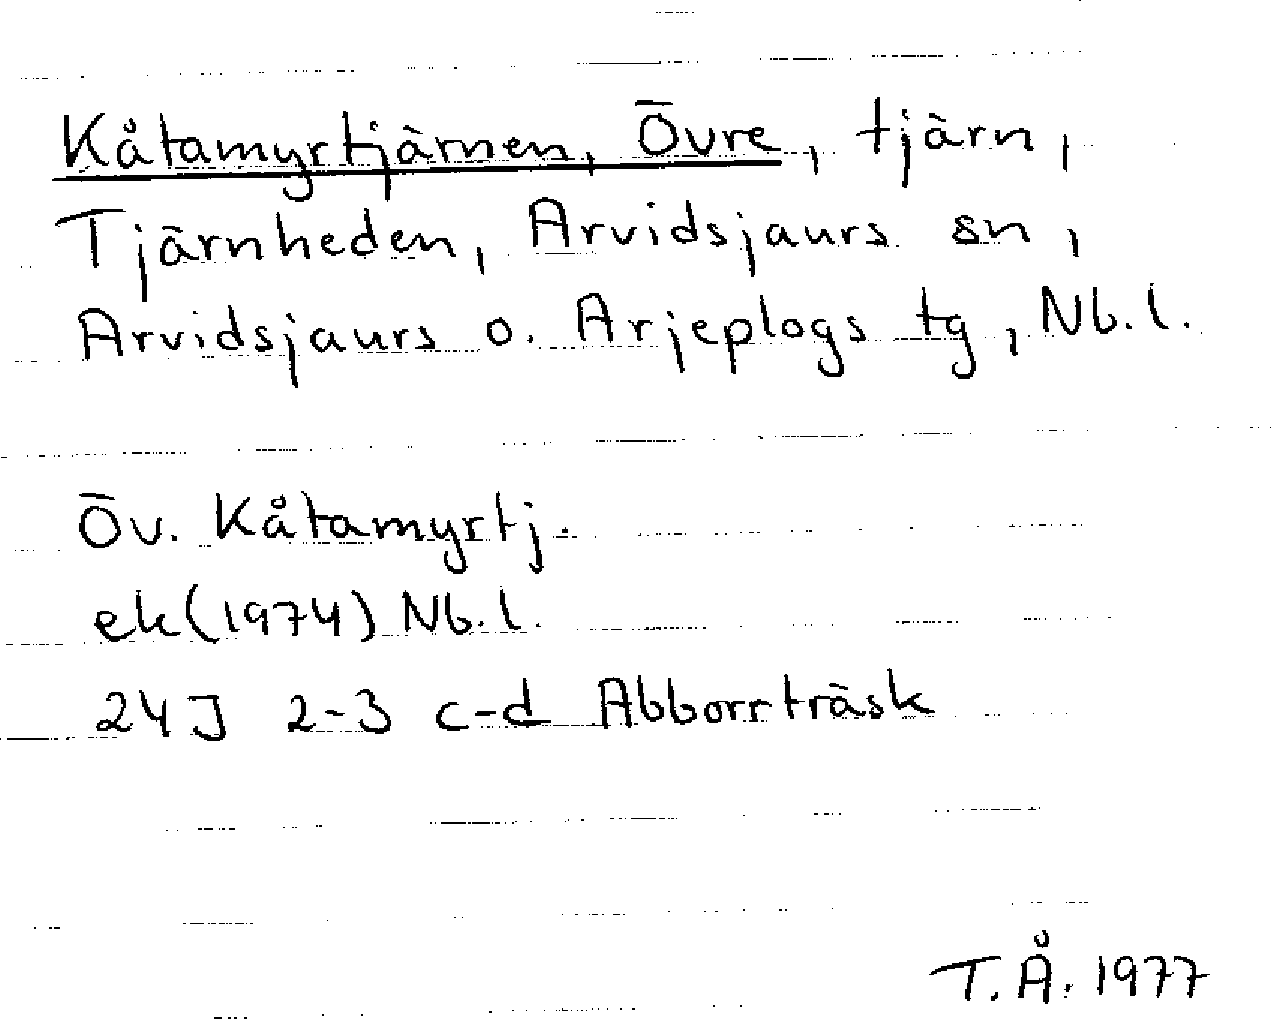 Kåtamyrtjärnen, Övre, tjärn,
Tjärnheden, Arvidsjaurs sn,
Arvidsjaurs o. Arjeplogs tg, Nb.l.
Öv. Kåtamyrtj.
ek(1974) Nb.l.
24J 2-3 c-d Abborrträsk
T.Å. 1977